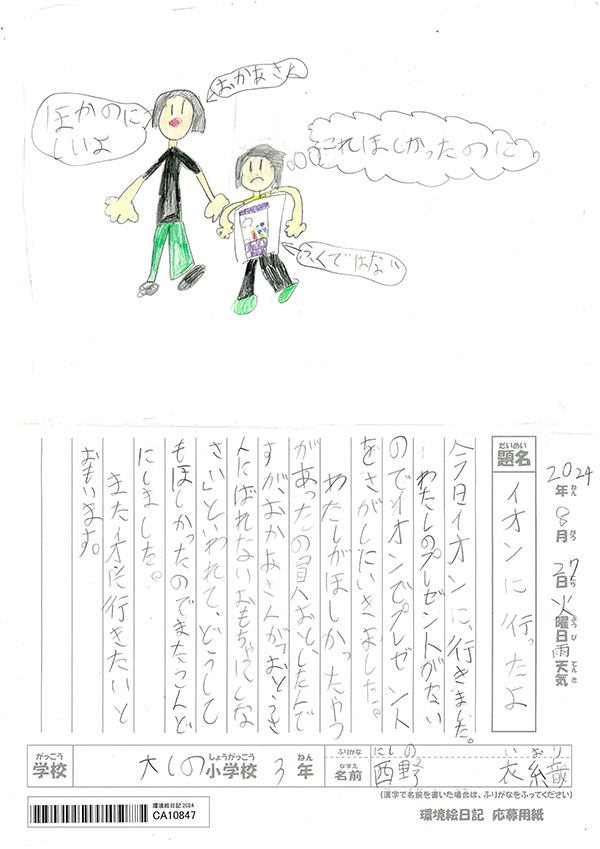 おかあさん
ほかのに
しいよ
これほしかったのに
ふくではない
2024年ねん8月がつ27日にち火曜日ようび雨天気てんき
だいめい
題名
イオンに行ったよ
今日イオンに、行きました。
わたしのプレゼントがない
のでイオンでプレゼント
をさがしにいきました。
わたしがほしかったやつ
があったの買おおとしたんで
すが、おかあさんが「おとうさ
んにばれないおもちゃにしな
さい」といわれて、どうして
もほしかったのでまたこんど
にしました。
またイオンに行きたいと
おもいます。
がっこう
学校
大しの小学校しょうがっこう3年ねん
ふりがな
にしの いおり
なまえ
名前
西野 衣織
(漢字で名前を書いた場合は、ふりがなをふってください)
環境絵日記2024
CA10847
環境絵日記 応募用紙